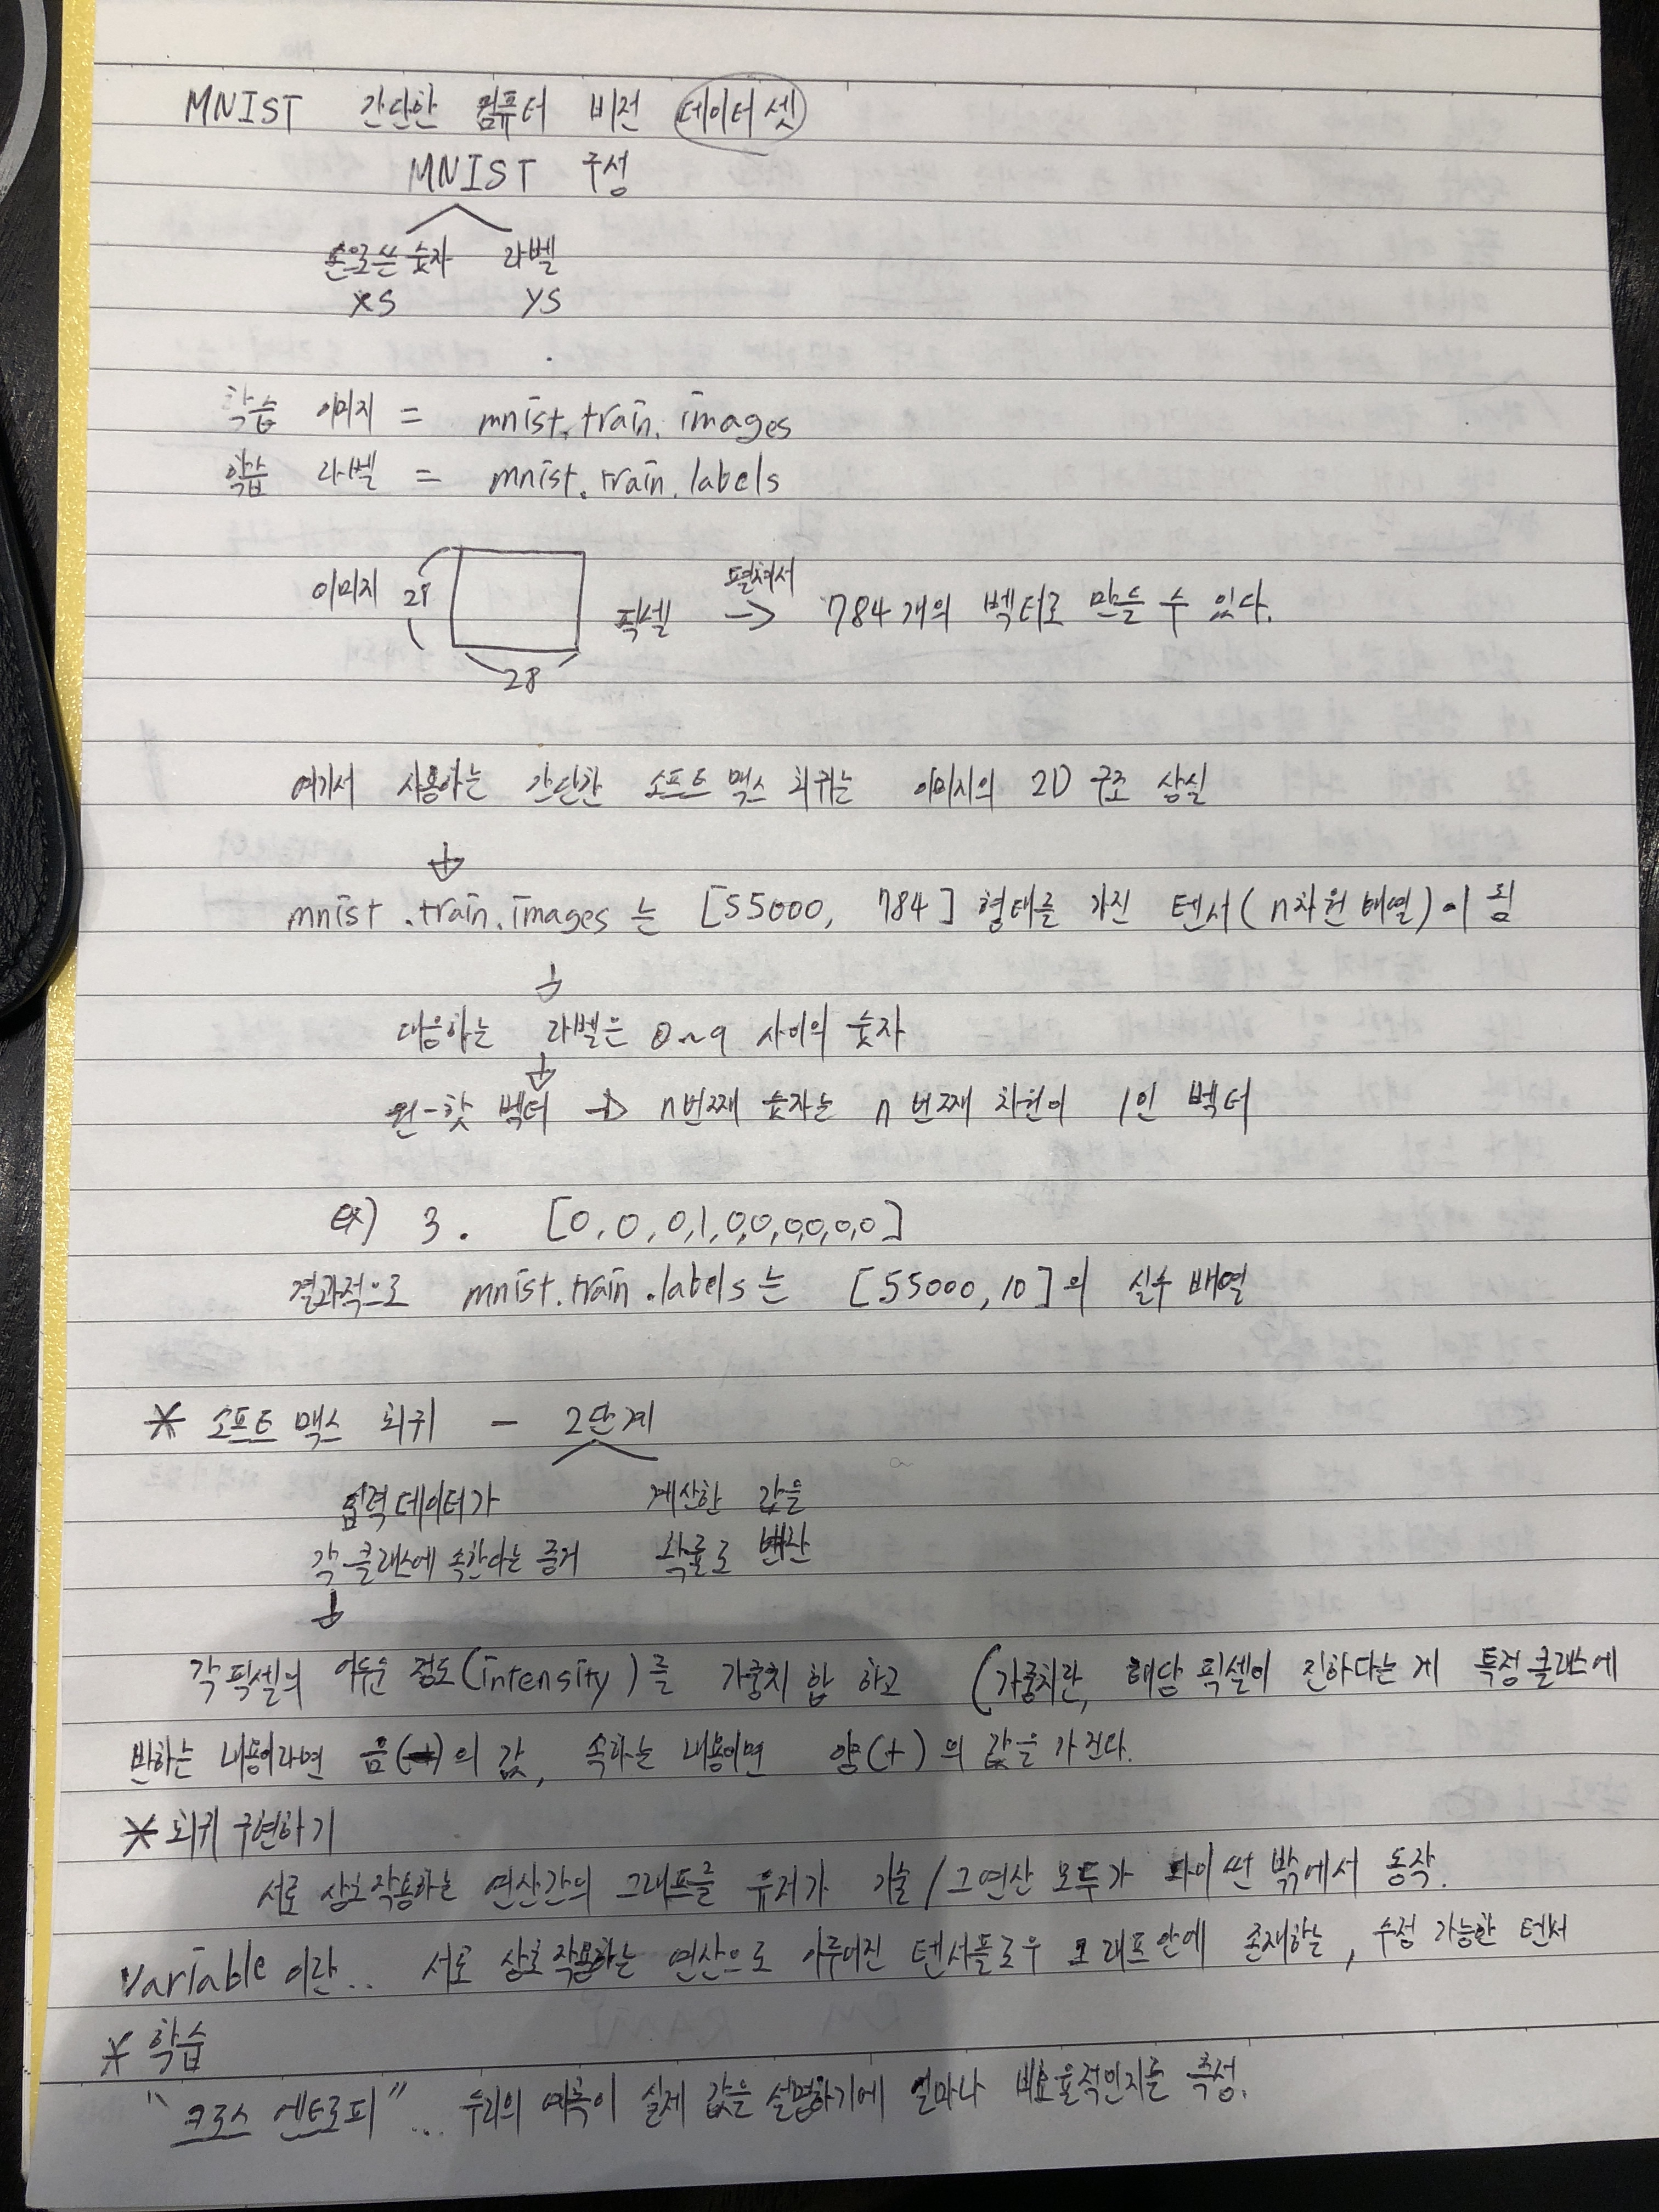 MNIST 간단한 컴퓨터 비전 데이터셋
MNIST 구성
손으로쓴 숫자 라벨
xs ys
학습 이미지 = mnist.train.images
학습 라벨 = mnist.train.labels
이미지 28 픽셀 펼쳐서 → 784개의 벡터로 만들 수 있다.
28
여기서 사용하는 간단한 소프트 맥스 회귀는 이미지의 2D 구조 상실
↓
mnist.train.images는 [55000, 784] 형태를 가진 텐서(n차원 배열)이 됨
↓
대응하는 라벨은 0~9 사이의 숫자
↓
원-핫 벡터 → n번째 숫자는 n번째 차원이 1인 벡터
ex) 3. [0,0,0,1,0,0,0,0,0,0]
결과적으로 mnist.train.labels는 [55000,10]의 실수 배열
* 소프트 맥스 회귀 - 2단계
입력데이터가 계산한 값을
각 클래스에 속한다는 증거 확률로 변환
↓
각 픽셀의 어두운 정도(intensity)를 가중치 합 하고 (가중치란, 해당 픽셀이 진하다는 게 특정클래스에
반하는 내용이라면 음(-)의 값, 속하는 내용이면 양(+)의 값을 가진다.
* 회귀 구현하기
서로 상호작용하는 연산간의 그래프를 유저가 기술/그연산 모두가 파이썬 밖에서 동작.
Variable이란.. 서로 상호작용하는 연산으로 이루어진 텐서플로우 그래프안에 존재하는, 수정 가능한 텐서
* 학습
"크로스 엔트로피"... 우리의 예측이 실제 값을 설명하기에 얼마나 비효율적인지를 측정.